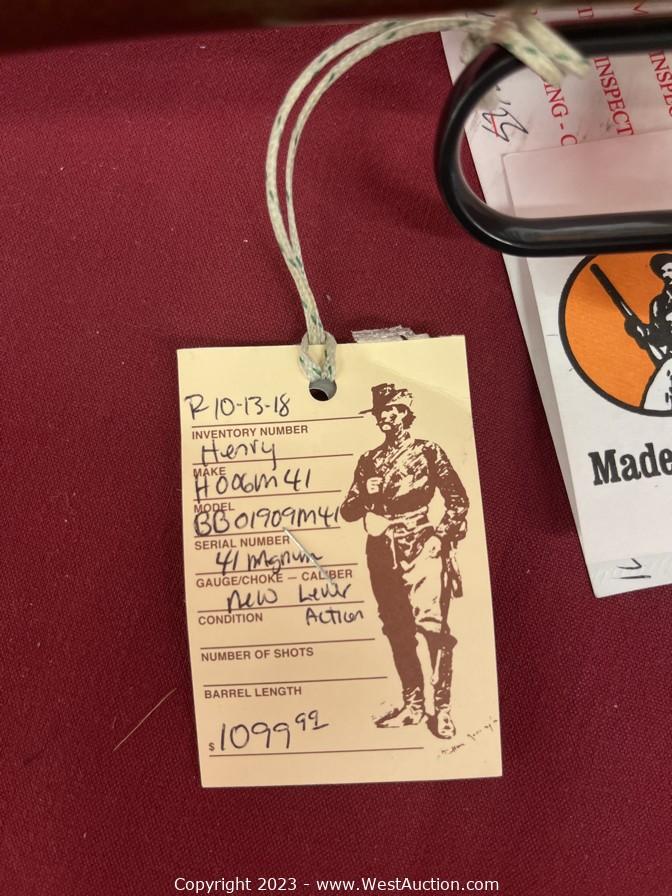 R 10-13-18
INVENTORY NUMBER
Henry
MAKE
H006M41
MODEL
BB01909M41
SERIAL NUMBER
41 Mgnum
GAUGE/CHOKE — CALIBER
New Lever
CONDITION Action
NUMBER OF SHOTS
BARREL LENGTH
$1099 99
INSPECT
ING - C
Made
Copyright 2023 - www.WestAuction.com